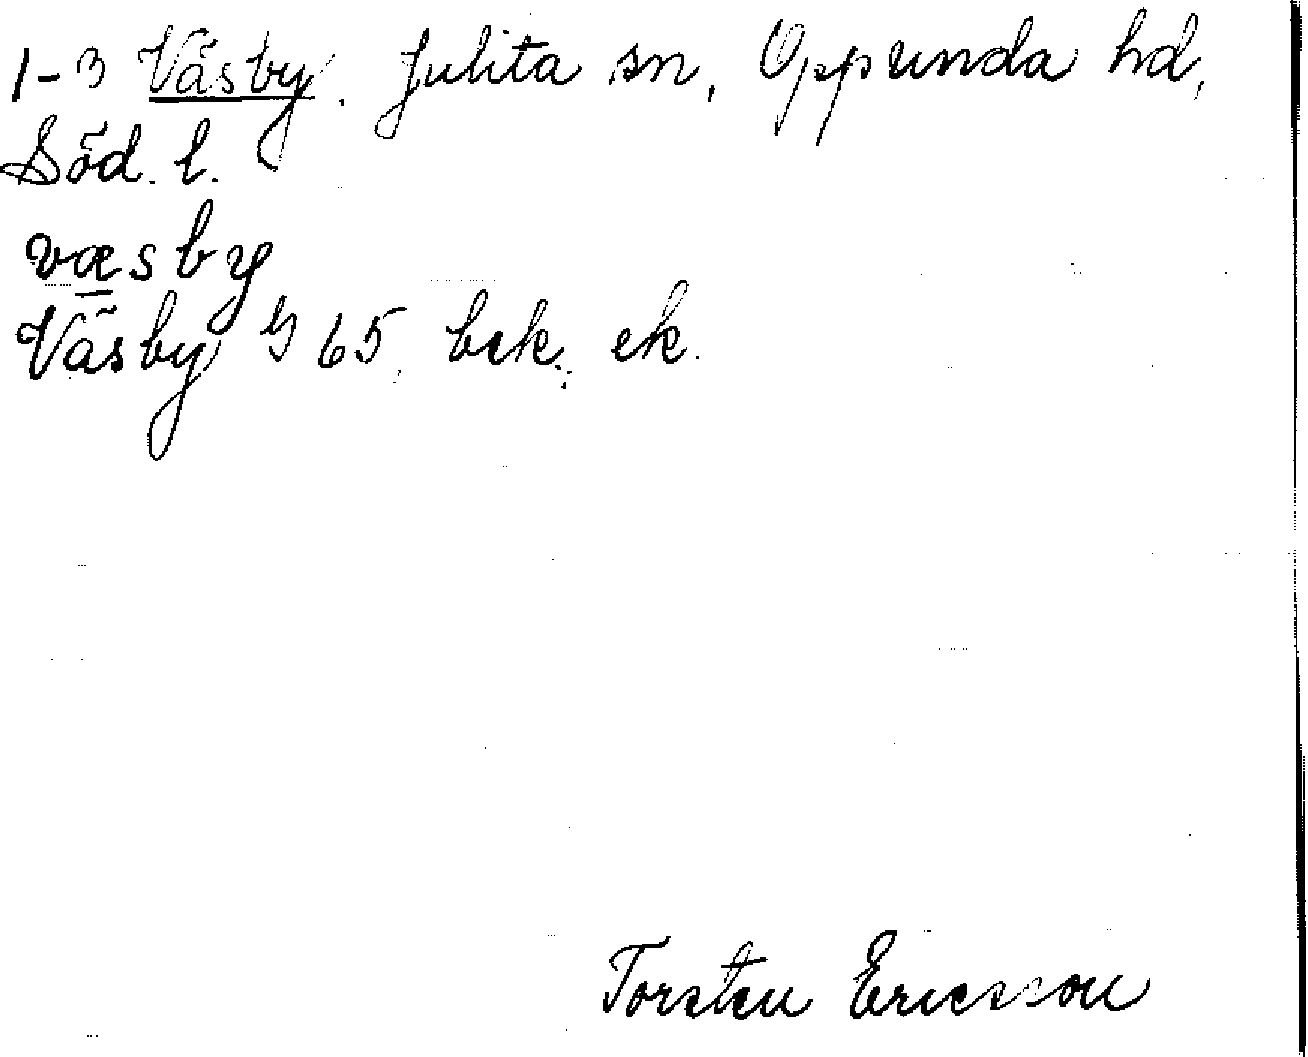 1-3 Väsby. Julita sn, Oppunda hd,
Söd. l.
væsby
Väsby 65, bek. ek.
Torsten Ericsson